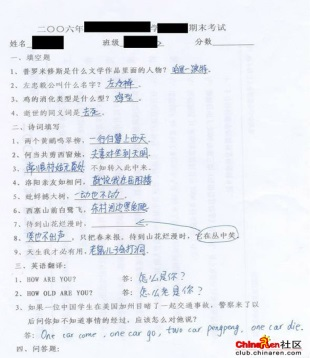 二〇〇六年 学 期末考试
姓名 班级 分数
一、填空题
1、普罗米修斯是什么文学作品里面的人物?
2、左忠毅公叫什么名字?
3、鸡的消化类型是什么型?
4、逝世的同义词是 去死
二、诗词填写
1、两个黄鹂鸣翠柳, 一行白鹭上西天
2、何当共剪西窗烛, 夫妻对坐到天明
3、 不知转入此中来.
4、洛阳亲友如相问,
5、蚍蜉撼大树, 一动也不动
6、西塞山前白鹭飞,
7、待到山花烂漫时,
8、 只把春来报, 待到山花烂漫时, 它在丛中笑.
9、天生我才必有用, 老鼠儿子会打洞
三、英语翻译:
1、HOW ARE YOU? 答: 怎么是你?
2、HOW OLD ARE YOU? 答: 怎么老是你?
3、如果一位中国学生在美国加州目睹了一起交通事故, 警察来了以
后问你知不知道事情的经过, 应该怎么对他说?
答: One car come, one car go, two car pengpong, one car die.
四、问答题:
ChinaRen社区
club.chinaren.com